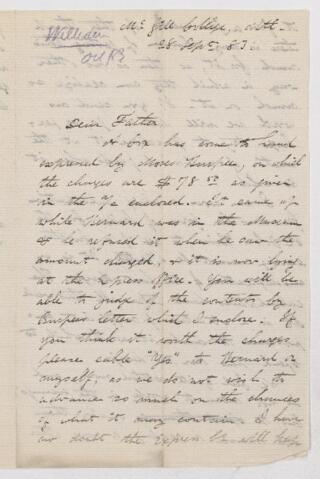 William
Oct 83
McGill College, Mtl.
28 Sept 83
Dear Father
A box has come to hand
expressed by Moses
the charges are $78.50 as given
in the enclosed. It came up
while Bernard was in the Museum
& he refused it when he saw the
amount charged, & it is now lying
at the Express Office. You will be
able to judge of the contents by
letter which I enclose. If
you think it worth the charges
please cable "Yes" to Bernard or
myself, as we do not wish to
advance so much on the chances
of what it may contain. I have
no doubt the Express Co will keep